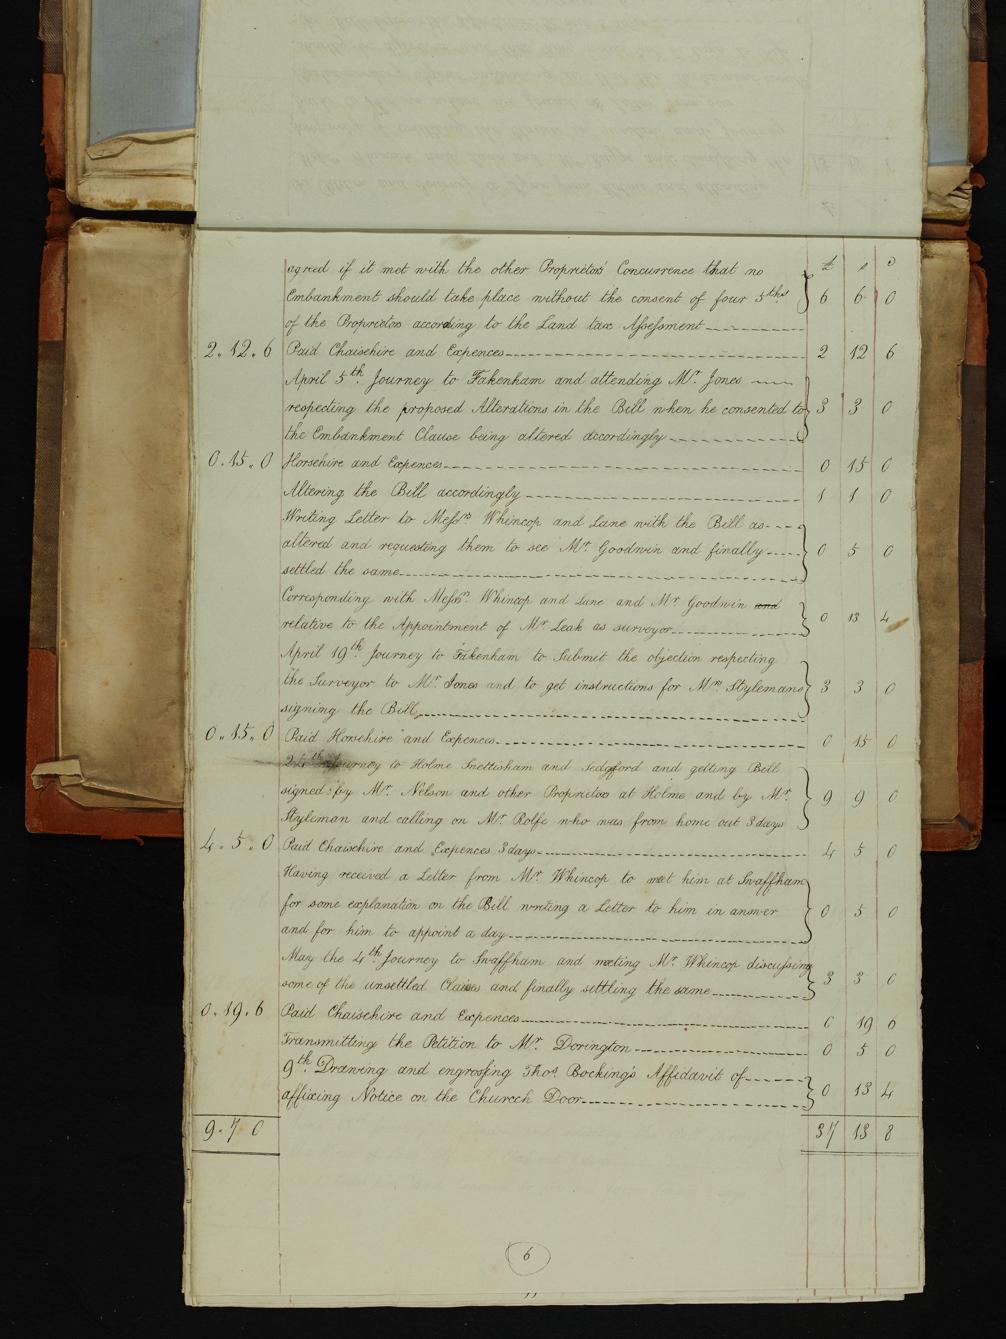 £ s D
agreed if it met with the other Proprietors' Concurrence that no
Embankment should take place without the consent of four 5ths 6 6 0
of the Proprietors according to the Land tax Assessment
2.12.6 Paid Chaisehire and Expences 2 12 6
April 5th Journey to Fakenham and attending Mr. Jones
respecting the proposed Alterations in the Bill when he consented to 3 3 0
the Embankment Clause being altered accordingly
0.15.0 Horsehire and Expences 0 15 0
Altering the Bill accordingly 1 1 0
Writing Letter to Messrs. Whincop and Lane with the Bill as
altered and requesting them to see Mr. Goodwin and finally 0 5 0
settled the same
Corresponding with Messrs. Whincop and Lane and Mr Goodwin and
relative to the Appointment of Mr. Leak as surveyor 0 13 4
April 19th Journey to Fakenham to Submit the objection respecting
the Surveyor to Mr. Jones and to get instructions for Mrs. Stylemans 3 3 0
signing the Bill
0.15.0 Paid Horsehire and Expences 0 15 0
24th Journey to Holme Snettisham and Sedgford and getting Bill
signed by Mr. Nelson and other Proprietors at Holme and by Mr. 9 9 0
Styleman and calling on Mr. Rolfe who was from home out 3 days
4.5.0 Paid Chaisehire and Expences 3 days 4 5 0
Having received a Letter from Mr. Whincop to meet him at Swaffham
for some explanation on the Bill writing a Letter to him in answer 0 5 0
and for him to appoint a day
May the 4th Journey to Swaffham and meeting Mr. Whincop discussing
some of the unsettled Clauses and finally settling the same 3 3 0
0.19.6 Paid Chaisehire and Expences 0 19 6
Transmitting the Petition to Mr. Dorington 0 5 0
9th. Drawing and engrossing Thos. Bocking's Affidavit of
affixing Notice on the Church Door 0 13 4
9.7 0 37 13 8
6